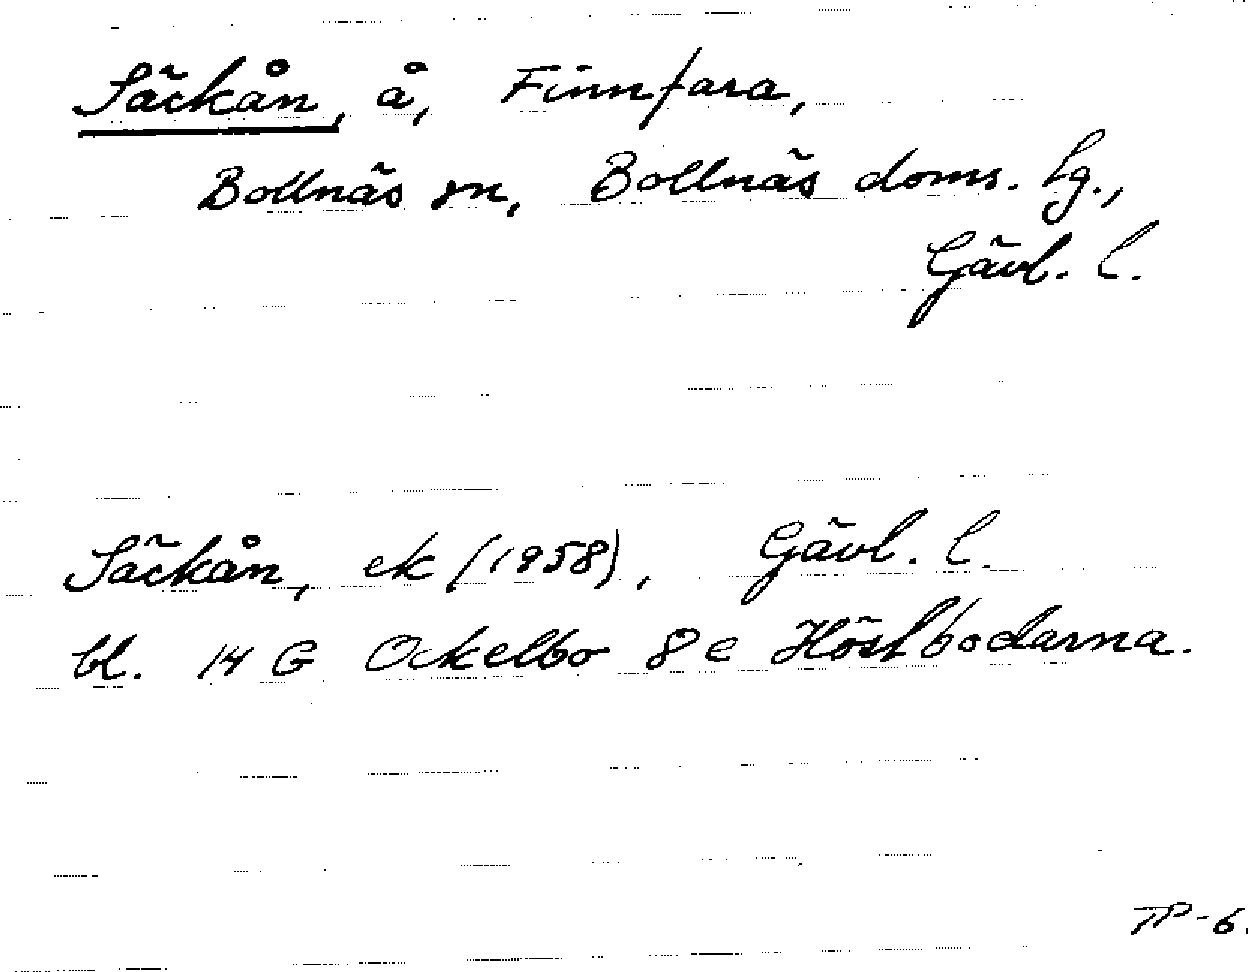 Säckån, å, Finnfara,
Bollnäs sn, Bollnäs doms. hg.,
Gävl. l.
Säckån, ek (1958), Gävl. l.
bl. 14 G Ockelbo 8 e Höstbodarna.
TP-6.